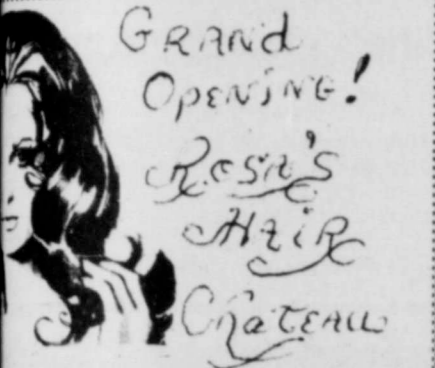 Grand
Opening!
Rosa's
Hair
Chateau